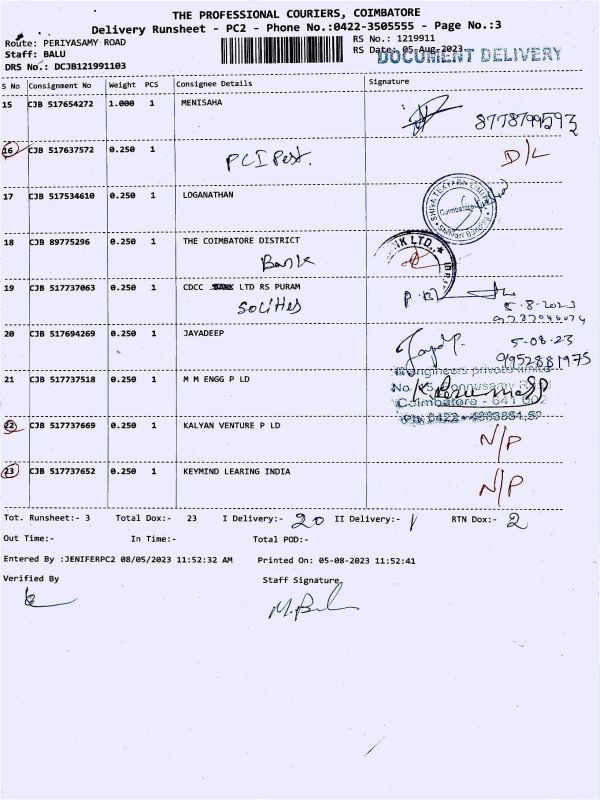 THE PROFESSIONAL COURIERS, COIMBATORE
Delivery Runsheet - PC2 - Phone No.:0422-3505555 - Page No.:3
Route: PERIYASAMY ROAD
RS No.: 1219911
Staff: BALU
RS Date: 05-Aug-2023
DOCUMENT DELIVERY
DRS No.: DCJB121991103
S No Consignment No Weight PCS Consignee Details Signature
15 CJB 517654272 1.000 1 MENISAHA
8778799593
16 CJB 517637572 0.250 1 PCI Pest. D/L
17 CJB 517534610 0.250 1 LOGANATHAN
Coimbatore
18 CJB 89775296 0.250 1 THE COIMBATORE DISTRICT
Bank
NK LTD.,
19 CJB 517737063 0.250 1 CDCC BANK LTD RS PURAM
5-8-2023
20 CJB 517694269 0.250 1 JAYADEEP
5-08-23
9952881975
21 CJB 517737518 0.250 1 M M ENGG P LD
engineers private limited
Coimbatore - 641 002
22 CJB 517737669 0.250 1 KALYAN VENTURE P LD N/P
23 CJB 517737652 0.250 1 KEYMIND LEARING INDIA N/P
Tot. Runsheet:- 3 Total Dox:- 23 I Delivery:- 20 II Delivery:- 1 RTN Dox:- 2
Out Time:- In Time:- Total POD:-
Entered By :JENIFERPC2 08/05/2023 11:52:32 AM Printed On: 05-08-2023 11:52:41
Verified By Staff Signature